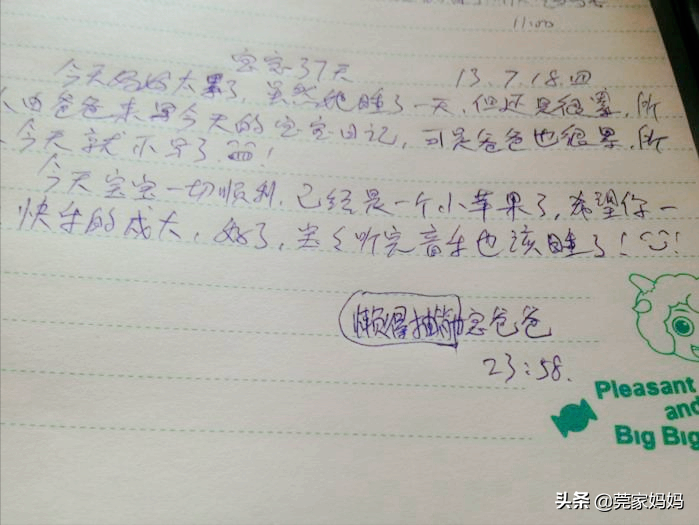 11:00
宝宝37天 13.7.18 四
今天妈妈太累了,虽然她睡了一天,但还是很累,所
由爸爸来写今天的宝宝日记,可是爸爸也很累,所
今天就不写了,
今天宝宝一切顺利,已经是一个小苹果了,希望你一
快乐的成大,好了,宝宝听完音乐也该睡了!
懒得抽筋 宝爸爸
23:58.
Pleasant
and
Big Big
头条 @莞家妈妈